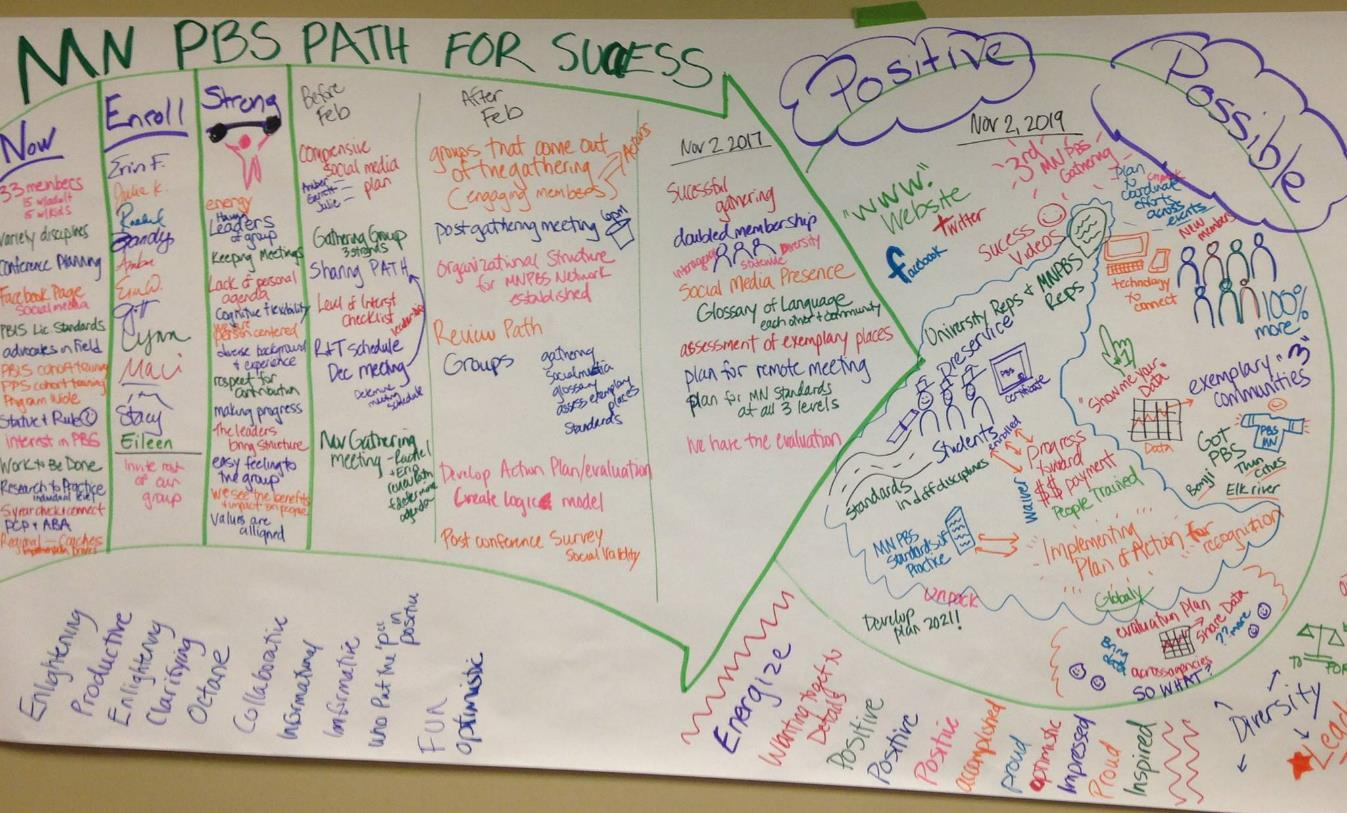 MN PBS PATH FOR SUCESS
Now
33 members
15 w/adult
15 w/kids
variety disciplines
Conference Planning
Facebook Page
Social media
PBIS Lic Standards
advocates in field
PBIS cohort training
PPS cohort training
Program Wide
Statute & Rule
interest in PBS
Work to Be Done
Research to Practice
individual level
PCP + ABA
Regional - Coaches
Enroll
Erin F.
Julie K.
Rachel
Lynn
Maci
Stacy
Eileen
Invite rest
of our
group
Strong
energy
Having
Leaders
of group
Keeping Meetings
Lack of personal
agenda
Cognitive flexibility
we are
person centered
diverse background
+ experience
respect for
contribution
making progress
The leaders
bring structure
easy feeling to
the group
we see the benefits
+ impact on people
Values are
alligned
Before
Feb
compensive
social media
plan
Amber
Garrett
Julie
Gathering Group
3 strands
Sharing PATH
Level of Interst
checklist
leadership
R+T schedule
Dec meeting
Determine
meeting
schedule
Nov Gathering
meeting - Rachel
+ Erin
review Path
+ determine
agenda
After
Feb
groups that come out
of the gathering
(engaging members)
Actions
post gathering meeting
6pm
Organizational Structure
for MNPBS Network
established
Review Path
Groups
gathering
Social media
glossary
assess exemplary
places
Standards
Develop Action Plan/evaluation
Create Logic model
Post conference Survey
Social Validity
Nov 2 2017
Sucessful
gathering
doubled membership
interagency
statewide
Diversity
Social Media Presence
Glossary of Language
each other + community
assessment of exemplary places
plan for remote meeting
plan for MN Standards
at all 3 levels
We have the evaluation
Positive
Possible
Nov 2, 2019
"WWW."
Website
twitter
facebook
3rd
MN PBS
Gathering
Plan
to
Coordinate
efforts
across
events
Sucess
Videos
technology
to
connect
New
members
100%
more
University Reps & MNPBS
Reps
Preservice
PBS
certificate
Students
enrolled
in diff disciplines
Standards
#1
"Show me your
Data"
Data
exemplary "3"
communities
PBS
MN
Got
PBS
Bemji
Twin
Cities
Elk river
Waiver
Progress
toward
$$ payment
People Trained
MN PBS
Standards of
Practice
Implementing
Plan of Action for
recognition
Globaly
Unpack
Develop
plan 2021!
evaluation Plan
Bring
data
Share Data
??more
across agencies
SO WHAT?
Enlightening
Productive
Enlightening
Clarifying
Octane
Collaborative
Informational
Informative
Who Put the 'P' in
positive
FUN
optimistic
Energize
Wanting to get to
Details
Positive
Positive
Positive
accomplished
proud
optimistic
Impressed
Proud
Inspired
TO
FOR
Diversity
Lead